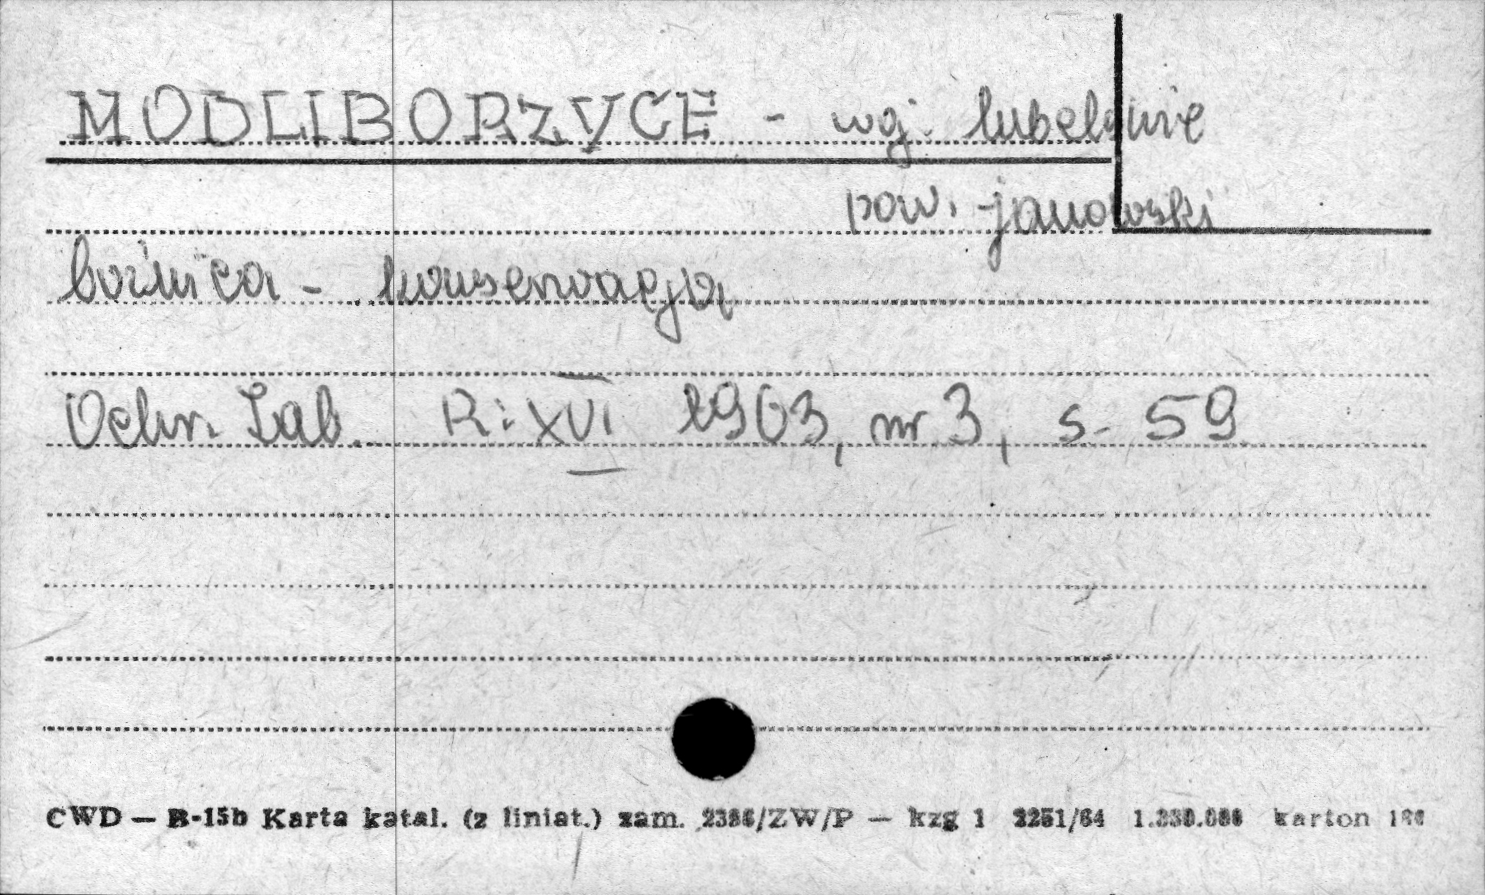 MODLIBORZYCE - wqj. lubelskie
pow. janowski
bożnica - konserwacja
Ochr. Zab. R: XVI 1963, nr 3, s. 59
CWD — B-15b Karta katal. (z liniat.) zam. 2386/ZW/P — kzg 1 2251/64 karton